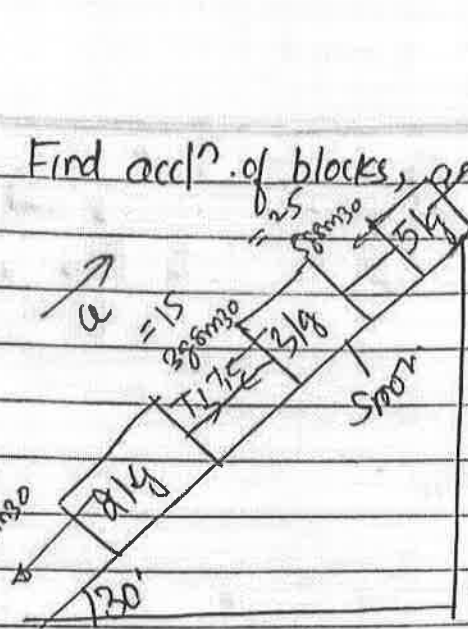 Find acclⁿ. of blocks,
= 25
5g sin30
5kg
a
= 15
3g sin30
3kg
T₁
smooth
2kg
30°